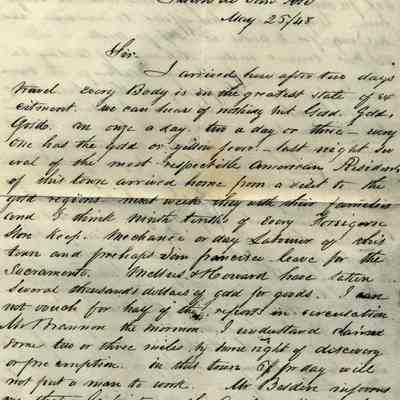 Pueblo de San José
May 25/48
Sir
I arrived here after two days
travel every Body is in the greatest state of ex
citment. we can hear of nothing but Gold, Gold,
Gold. an onze a day. two a day or three — every
one has the gold or yellow fever — last night sev
eral of the most respectable American Residents
of this town arrived home from a visit to the
gold regions next week they with their families
and I think nineth tenths of every Foreigner
Store keep. Mechanic or day Laborer of this
town and prehaps San francisco leave for the
Sacramento. Mellus & Howard have taken
several thousands dollars of gold for goods. I can
not vouch for half of the reports in circulation
Mr Brannon the mormon I understand claims
some two or three miles by some right of discovery
or pre emption. in this town $6 pr day will
not put a man to work. Mr Belden informs
me that